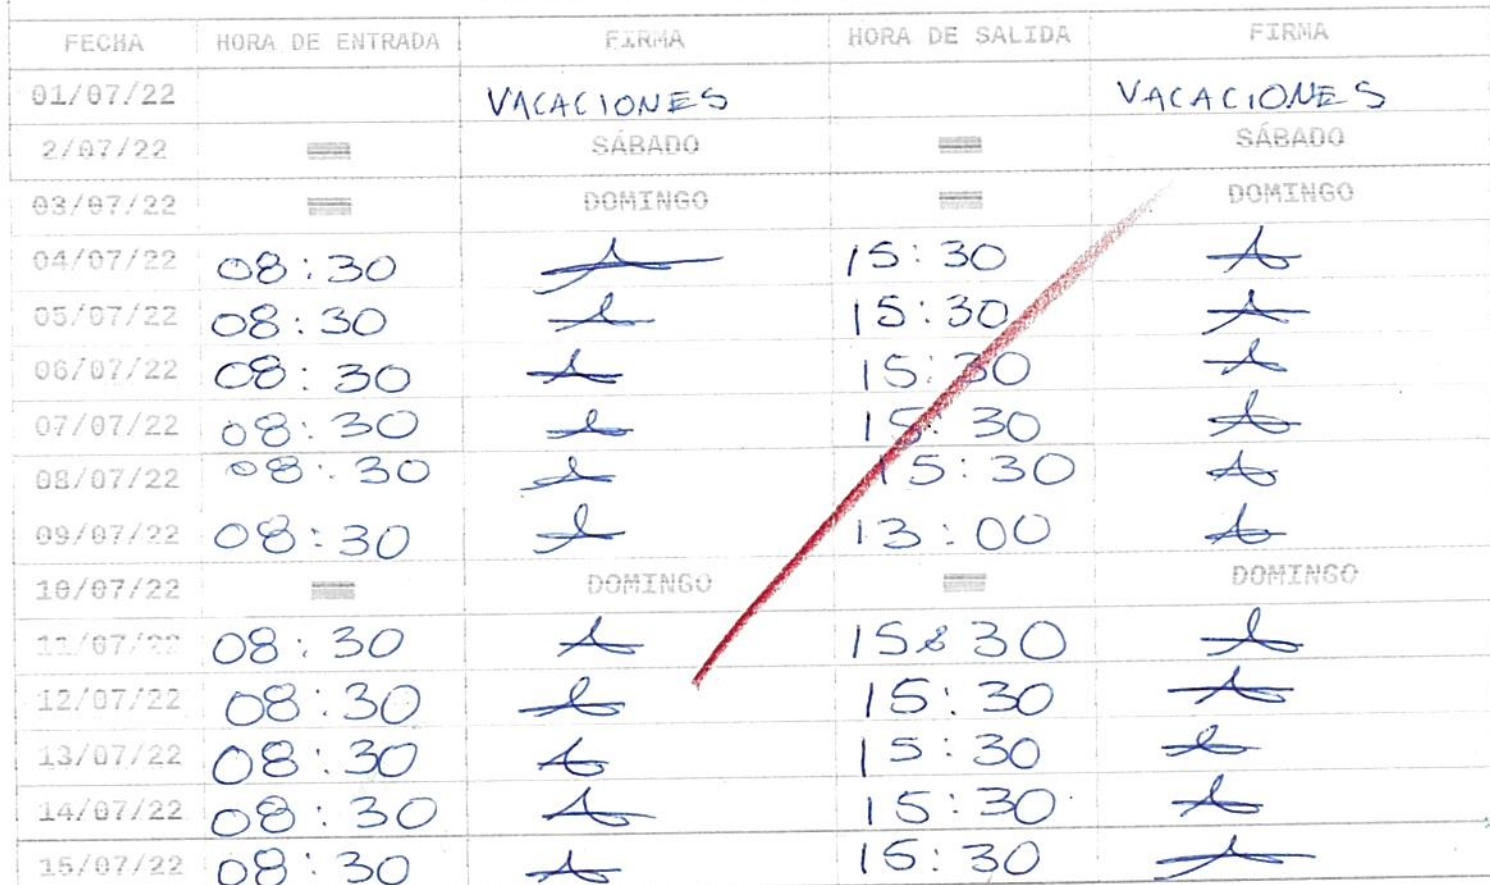 FECHA HORA DE ENTRADA FIRMA HORA DE SALIDA FIRMA
01/07/22 VACACIONES VACACIONES
2/07/22 SÁBADO SÁBADO
03/07/22 DOMINGO DOMINGO
04/07/22 08:30 15:30
05/07/22 08:30 15:30
06/07/22 08:30 15:30
07/07/22 08:30 15:30
08/07/22 08:30 15:30
09/07/22 08:30 13:00
10/07/22 DOMINGO DOMINGO
11/07/22 08:30 15:30
12/07/22 08:30 15:30
13/07/22 08:30 15:30
14/07/22 08:30 15:30
15/07/22 08:30 15:30